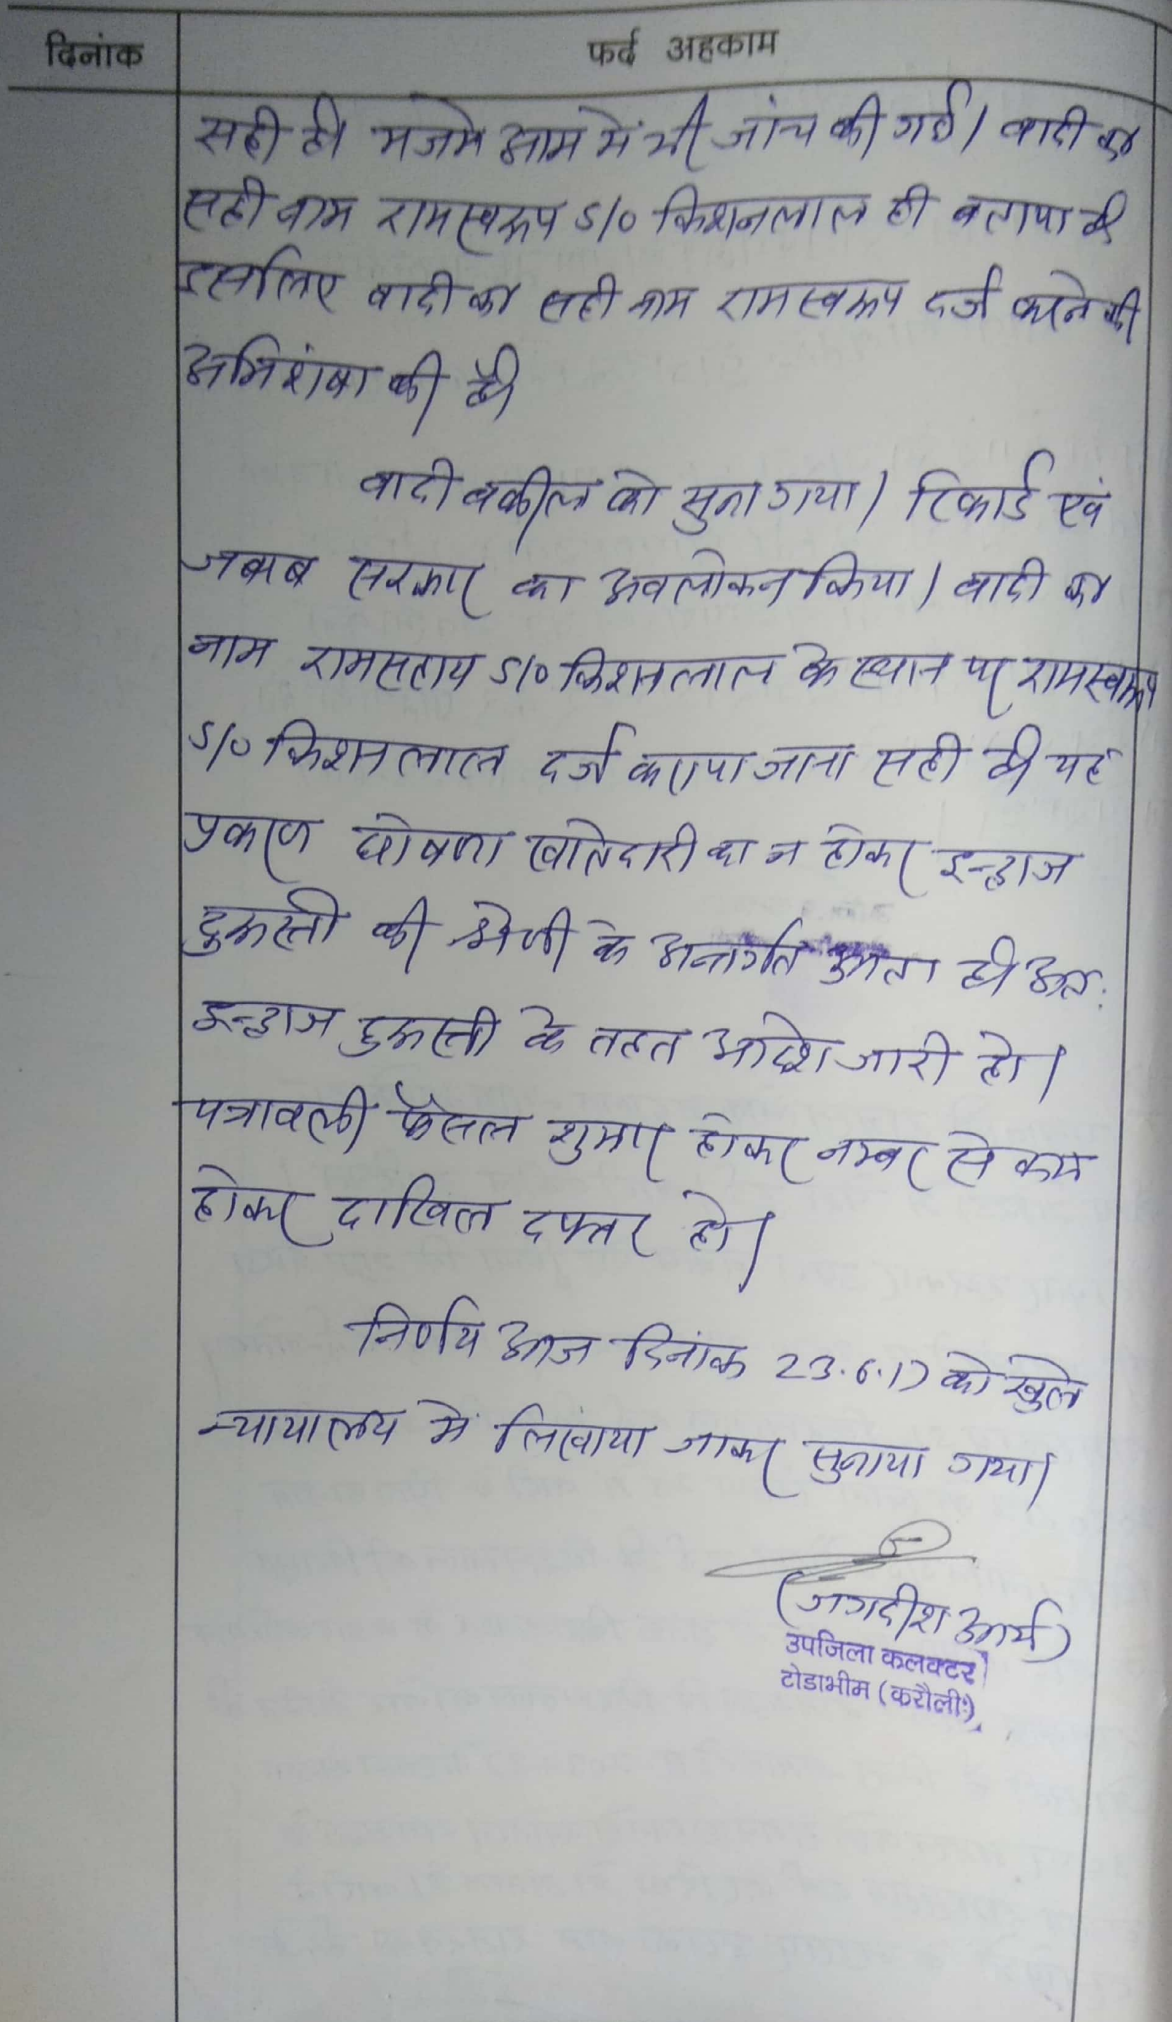 दिनांक फर्द अहकाम
सही है। मजमे आम में भी जांच की गई। वादी का
सही नाम रामस्वरूप S/o किशनलाल ही बताया है
इसलिए वादी का सही नाम रामस्वरूप दर्ज करने की
अभिशंषा की है।
वादी वकील को सुना गया। रिकार्ड एवं
जबाब सरकार का अवलोकन किया। वादी का
नाम रामसहाय S/o किशनलाल के स्थान पर रामस्वरूप
S/o किशनलाल दर्ज कराया जाना सही है। यह
प्रकरण घोषणा खातेदारी का न होकर इन्द्राज
दुरूस्ती की श्रेणी के अन्तर्गत आता है। अतः
इन्द्राज दुरूस्ती के तहत आदेश जारी हो।
पत्रावली फैसल शुमार होकर नम्बर से कम
होकर दाखिल दफ्तर हो।
निर्णय आज दिनांक 23.6.17 को खुले
न्यायालय में लिखाया जाकर सुनाया गया।
(जगदीश आर्य)
उपजिला कलक्टर
टोडाभीम (करौली)